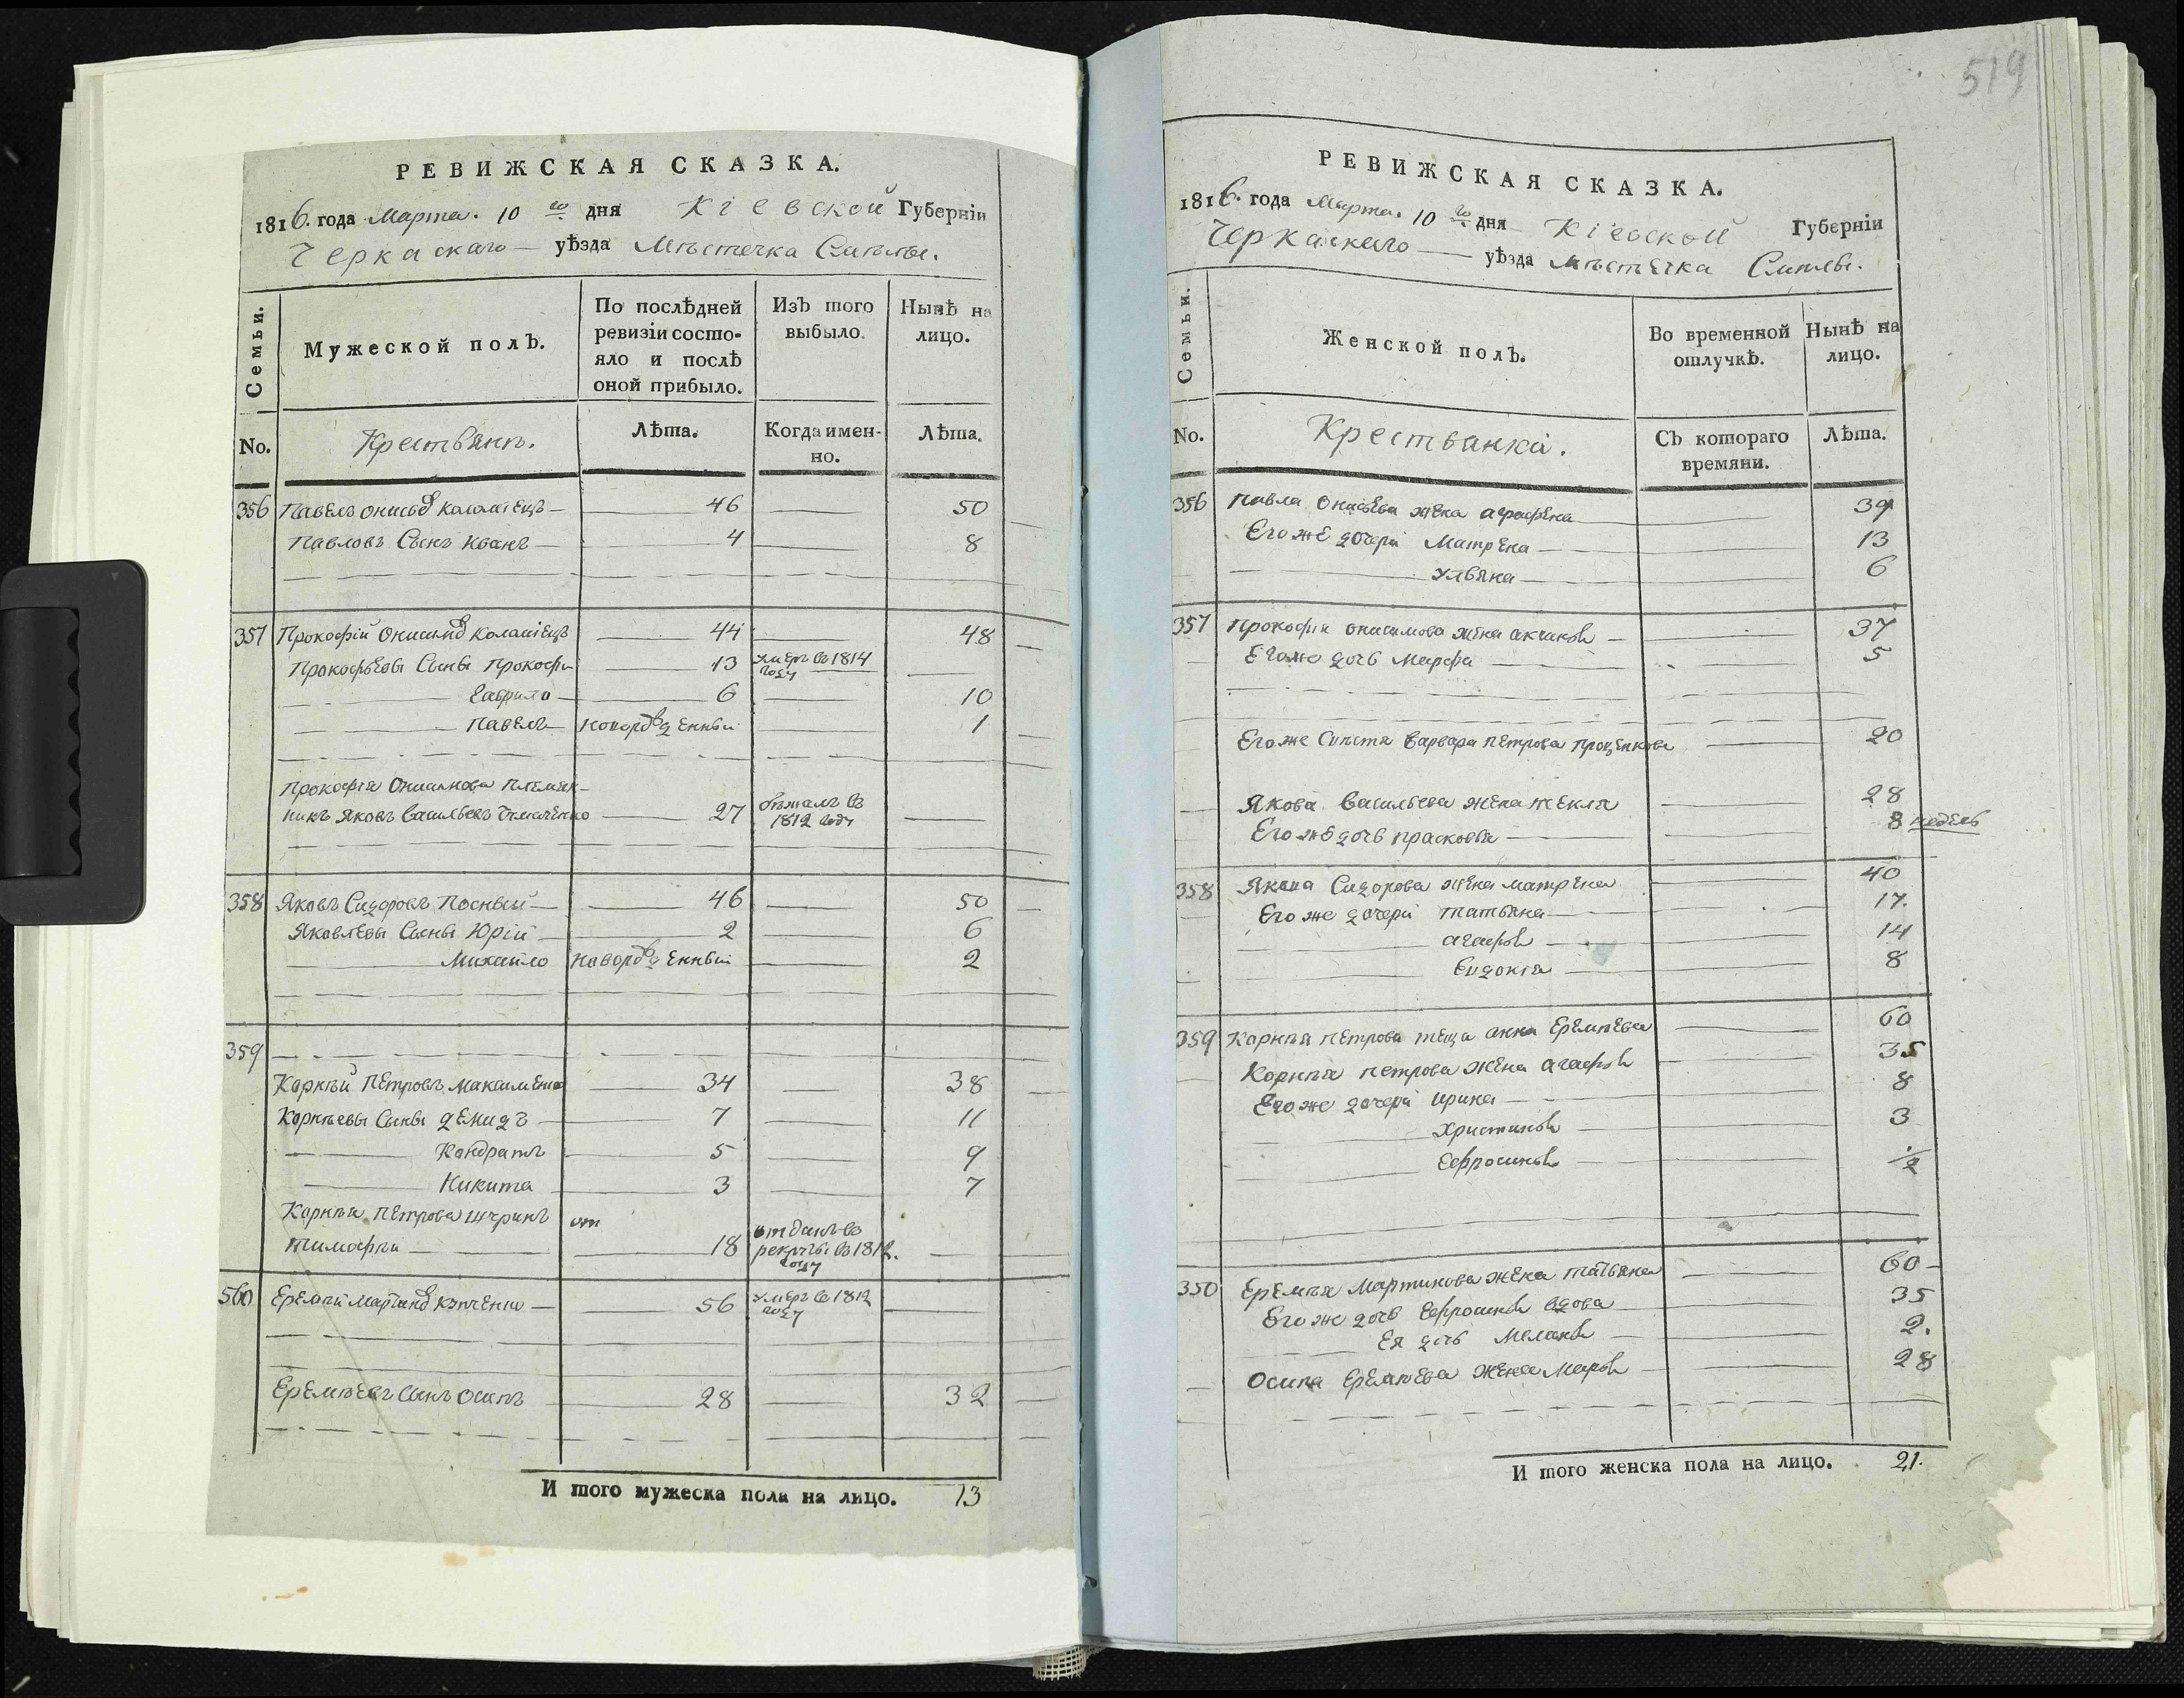 РЕВИЖСКАЯ СКАЗКА.
1816. года Марта. 10 го дня Кіевской Губерніи
Черкаскаго уѣзда Мѣстечка Смѣлы.
Семьи.
Мужеской полЪ.
По послѣдней ревизіи состояло и послѣ оной прибыло.
ИзЪ того выбыло.
Нынѣ на лицо.
No.
Крестьянъ.
Лѣта.
Когда именно.
Лѣта.
356 Павелъ Онисимов 46 50
Павловъ Сынъ Иванъ 4 8
357 Прокофій Онисимов 44 48
Прокофьевы Сыны Прокофи 13 умеръ въ 1814 году
Гаврило 6 10
Павелъ новорожденный 1
Прокофія Онисимова племян-
никъ Яковъ Васильевъ 27 бѣжалъ въ 1812 году
358 Яковъ Сидоровъ Посный 46 50
Яковлевы Сыны Юрій 2 6
Михайло новорожденный 2
359
Корнѣй Петровъ Максименко 34 38
Корнѣевы Сыны Демидъ 7 11
Кондратъ 5 9
Никита 3 7
Корнѣя Петрова шуринъ от
Тимофѣй 18 отданъ въ рекруты въ 1812. году
560 Еремѣй Мартинов 56 умеръ въ 1812 году
Еремѣевъ сынъ Осипъ 28 32
И того мужеска пола на лицо. 13
519
РЕВИЖСКАЯ СКАЗКА.
1816. года Марта. 10 го дня Кіевской Губерніи
Черкаскаго уѣзда Мѣстечка Смѣлы.
Семьи.
Женской полЪ.
Во временной отлучкѣ.
Нынѣ на лицо.
No.
Крестьянки.
СЪ котораго времяни.
Лѣта.
356 Павла Онисьева жена Аграфена 39
Его же дочери Матрена 13
Ульяна 6
357 Прокофия Онисимова жена 37
Его же дочь Марфа 5
Его же Варвара Петрова Проценкова 20
Якова Васильева жена Текля 28
Его же дочь Прасковья 8 недель
358 Якова Сидорова жена Матрена 40
Его же дочери Татьяна 17.
Агафья 14
Евдокія 8
359 Корнѣя Петрова теща Анна Еремѣева 60
Корнѣя Петрова жена Агафья 35
Его же дочери Ирина 8
Христинья 3
Ефросинья 1/2
350 Еремѣя Мартинова жена Татьяна 60
Его же дочь Ефросинья вдова 35
Ея дочь Меланья 2.
Осипа Еремѣева жена Марфа 28
И того женска пола на лицо. 21.